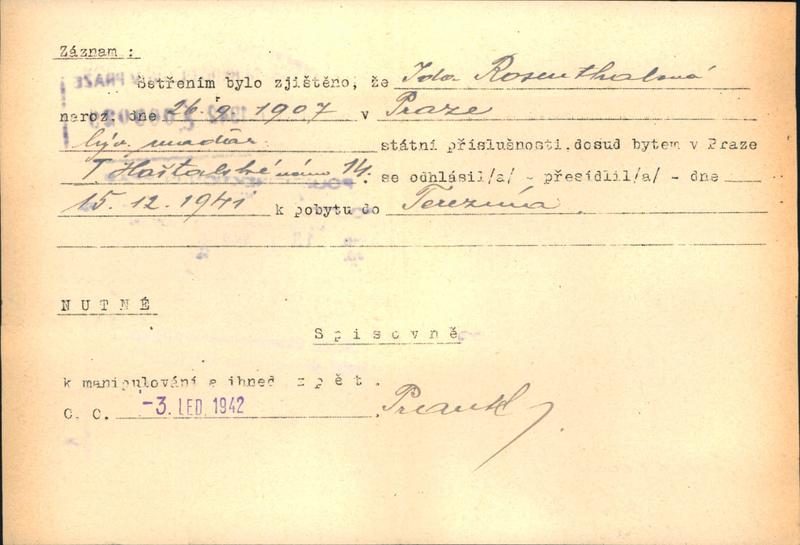 Záznam :
Šetřením bylo zjištěno, že Ida Rosenthalová
naroz. dne 26.9. 1907 v Praze
býv. maďar. státní příslušnosti, dosud bytem v Praze
I Haštalské nám 14. se odhlásil/a/ - přesídlil/a/ - dne
15.12.1941 k pobytu do Terezína
NUTNÉ
Spisovně
k manipulování a ihned zpět.
C. C. -3. LED. 1942